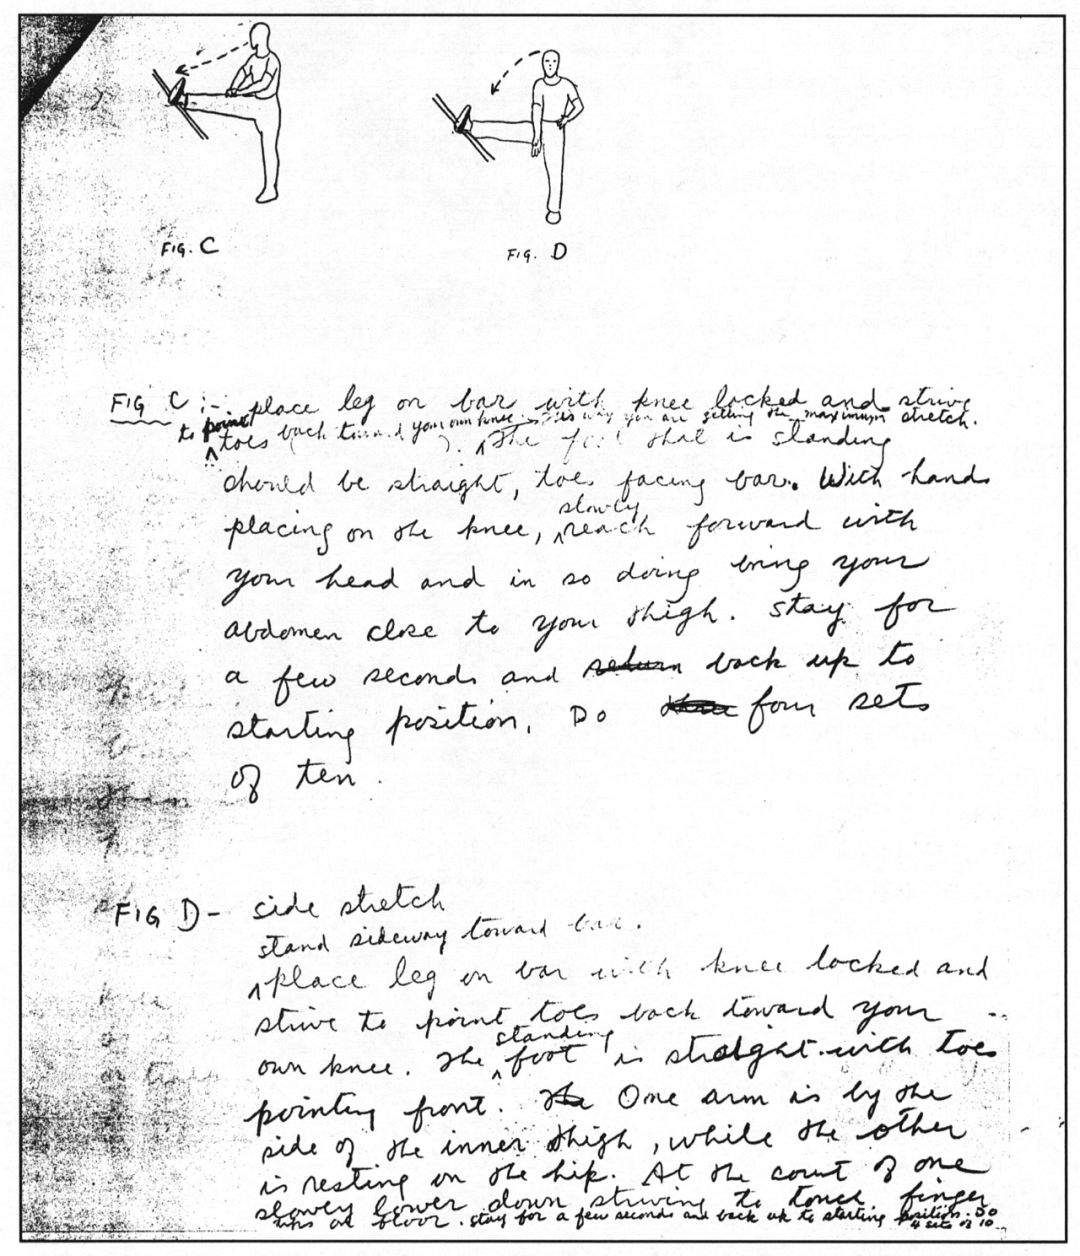 FIG. C
FIG. D
FIG C :- place leg on bar with knee locked and strive
to point toes back toward your own knee. This way you are getting the maximum stretch.
The foot that is standing
should be straight, toes facing bar. With hands
placing on the knee, slowly reach forward with
your head and in so doing bring your
abdomen close to your thigh. Stay for
a few seconds and return back up to
starting position. Do four sets
of ten.
FIG D - side stretch
stand sideway toward bar.
place leg on bar with knee locked and
strive to point toes back toward your
own knee. The standing foot is straight with toes
pointing front. The One arm is by the
side of the inner thigh, while the other
is resting on the hip. At the count of one
slowly lower down striving to touch finger
tips on floor. stay for a few seconds and back up to starting position. Do
4 sets of 10